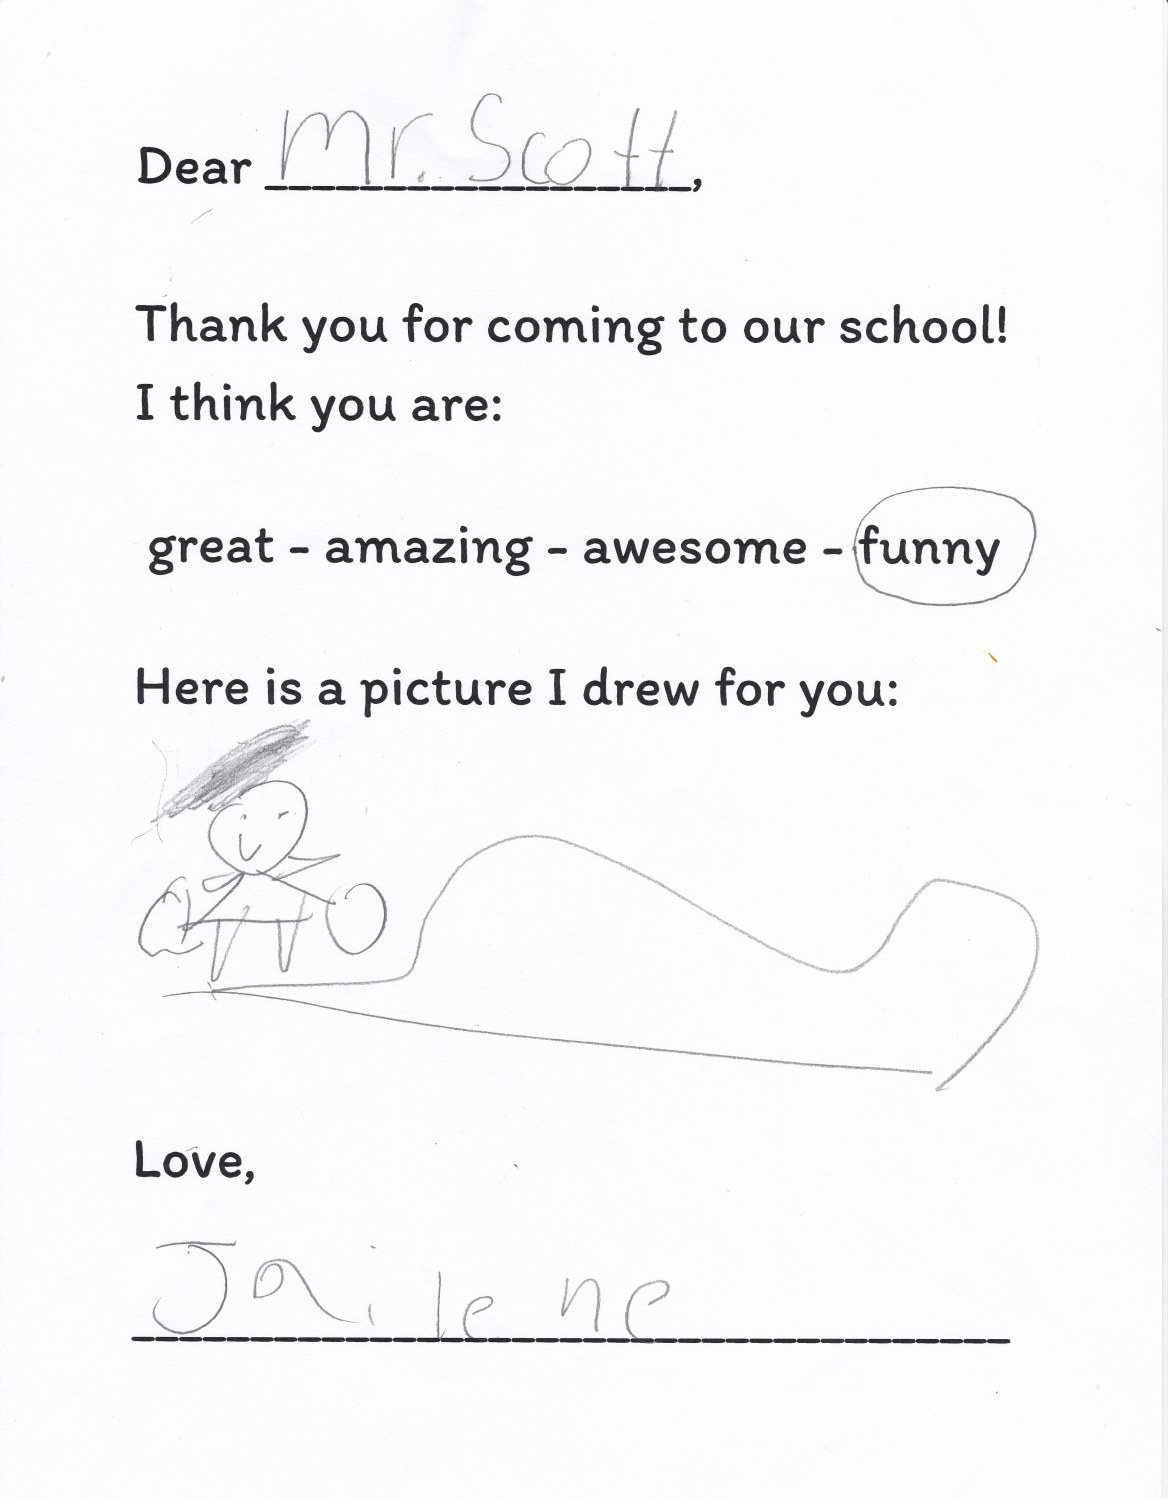 Dear Mr. Scott,
Thank you for coming to our school!
I think you are:
great - amazing - awesome - funny
Here is a picture I drew for you:
Love,
Jailene